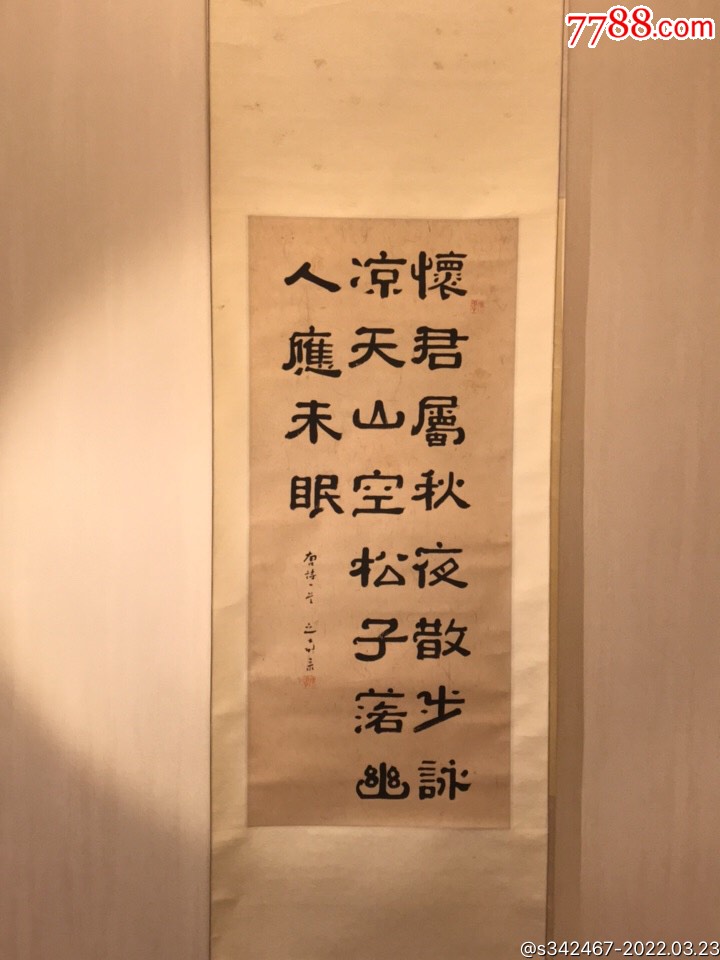 7788.com
懷君屬秋夜散步詠
凉天山空松子落幽
人應未眠
唐詩一首
@s342467-2022.03.23